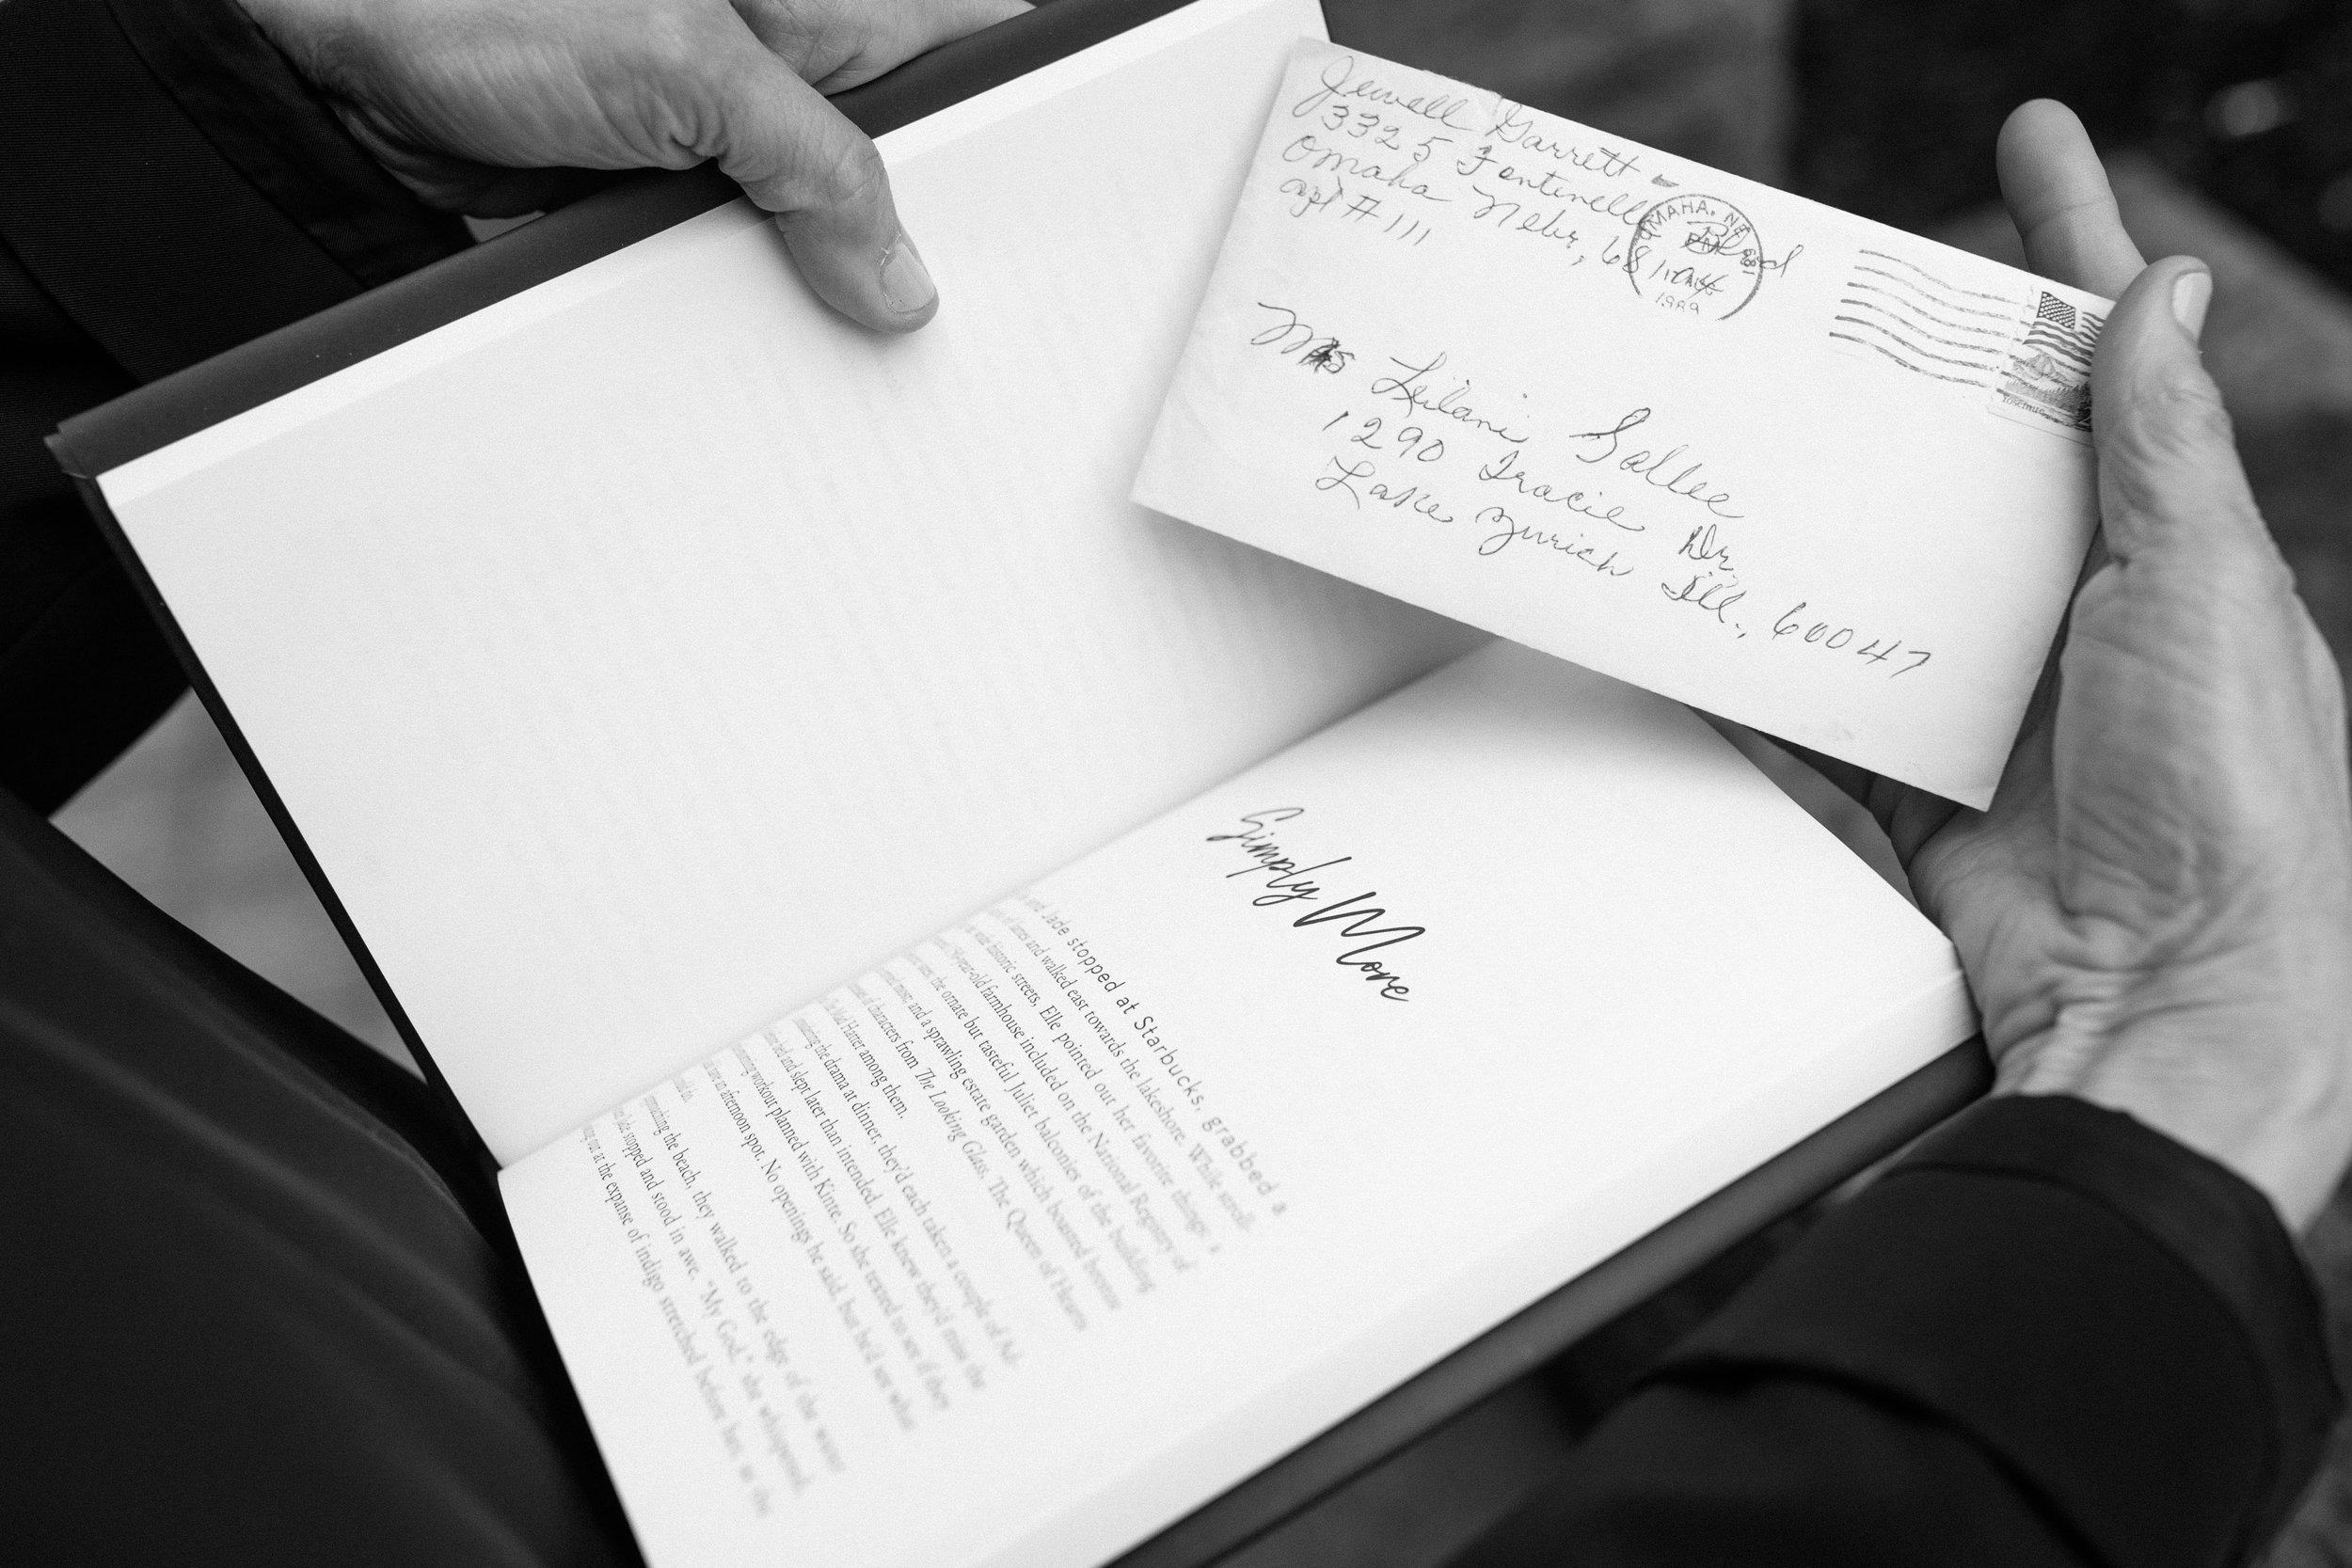 Jewell Garrett
3325 Fontenelle Blvd
Omaha Nebr, 68104
apt # 111
OMAHA, NE 681
PM
11 AUG
Mrs Leilani Sallee
1290 Tracie Dr.
Lake Zurich Ill., 60047
Yosemite
Simply More
and Jade stopped at Starbucks, grabbed a
and walked east towards the lakeshore. While stroll-
historic streets, Elle pointed out her favorite things: a
-year-old farmhouse included on the National Registry of
the ornate but tasteful Juliet balconies of the building
and a sprawling estate garden which boasted bronze
of characters from The Looking Glass. The Queen of Hearts
Mad Hatter among them.
the drama at dinner, they'd each taken a couple of Ad-
and slept later than intended. Elle knew they'd miss the
workout planned with Kinte. So she texted to see if they
an afternoon spot. No openings he said, but he'd see what
the beach, they walked to the edge of the water
stopped and stood in awe. "My God," she whispered,
out at the expanse of indigo stretched before her, as the